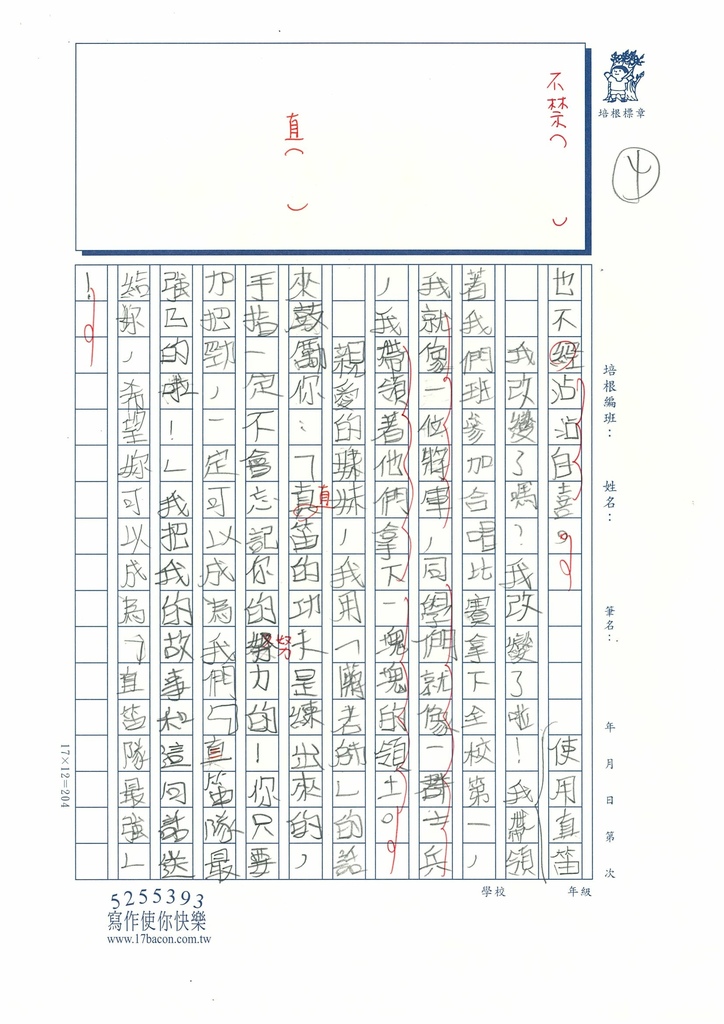 培根標章
4
不禁（　）
直（　）
培根編班：　姓名：　筆名：　年　月　日　第　次
學校　年級
也不經沾沾自喜。　使用直笛
我改變了嗎？我改變了啦！我帶領
著我們班參加合唱比賽拿下全校第一，
我就像一位將軍，同學們就像一群士兵
，我帶領著他們拿下一塊塊的領土。
親愛的妹妹，我用「蘭老師」的話
來鼓勵你：「真笛的功夫是練出來的，
直
手指一定不會忘記你的努力的！你只要
努
加把勁，一定可以成為我們『真笛隊最
強』的哦！」我把我的故事和這句話送
給妳，希望妳可以成為「直笛隊最強」
！
17×12=204
5255393
寫作使你快樂
www.17bacon.com.tw